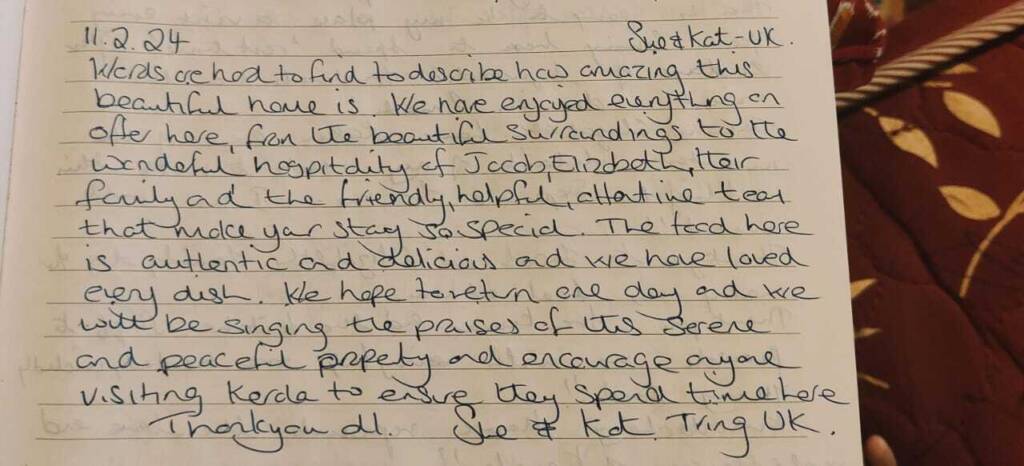 11.2.24 Sue & Kat - UK.
Words are hard to find to describe how amazing this
beautiful home is. We have enjoyed everything on
offer here, from the beautiful surroundings to the
wonderful hospitality of Jacob, Elizabeth, their
family and the friendly, helpful, attentive team
that make your stay so special. The food here
is authentic and delicious and we have loved
every dish. We hope to return one day and we
will be singing the praises of this serene
and peaceful property and encourage anyone
visiting Kerala to ensure they spend time here
Thankyou all. Sue & Kat. Tring UK.